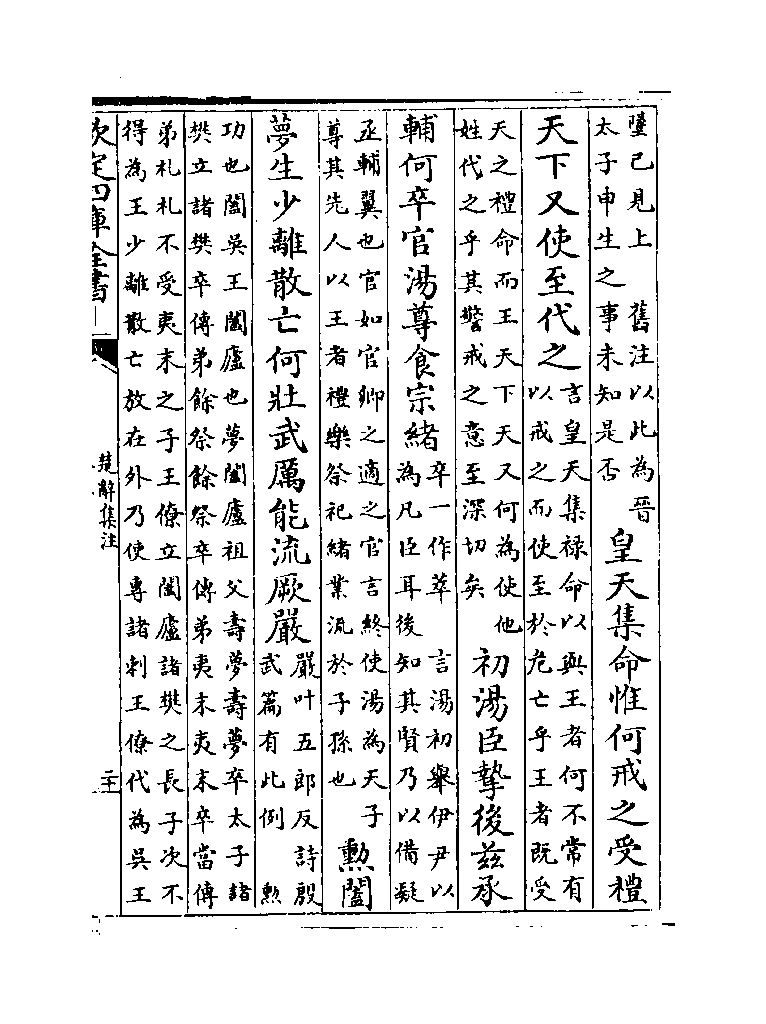 墬已見上 舊注以此為晉
太子申生之事未知是否
皇天集命惟何戒之受禮
天下又使至代之
言皇天集祿命以與王者何不常有
以戒之而使至於危亡乎王者既受
天之禮命而王天下天又何為使他
姓代之乎其警戒之意至深切矣
初湯臣摯後茲承
輔何卒官湯尊食宗緒
卒一作萃 言湯初舉伊尹以
為凡臣耳後知其賢乃以備疑
丞輔翼也官如官卿之適之官言終使湯為天子
尊其先人以王者禮樂祭祀緒業流於子孫也
勲闔
夢生少離散亡何壯武厲能流厥嚴
嚴叶五郎反詩殷
武篇有此例 勲
功也闔吳王闔廬也夢闔廬祖父壽夢壽夢卒太子諸
樊立諸樊卒傳弟餘祭餘祭卒傳弟夷末夷末卒當傳
弟札札不受夷末之子王僚立闔廬諸樊之長子次不
得為王少離散亡放在外乃使專諸刺王僚代為吳王
欽定四庫全書
楚辭集注